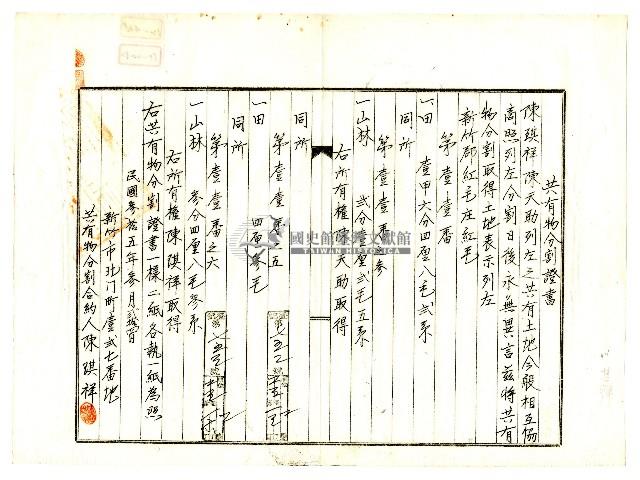 共有物分割證書
陳騏祥陳天助列左之共有土地今般相互協
商照列左分割日後永無異言茲將共有
物分割取得土地表示列左
新竹郡紅毛庄紅毛
第壹壹番
一田 壹甲六分四厘八毛貳糸
同所
第壹壹番 參
一山林 貳分壹厘貳毛五糸
右所有權陳天助取得
同所
第壹壹 五
一田 四厘參毛
同所
第壹壹番之六
一山林 參分四厘八毛參糸
右所有權陳騏祥取得
右共有物分割證書一樣二紙各執一紙為照
民國參拾五年參月 日
新竹市北門町壹貳七番地
共有物分割合約人陳騏祥
國史館臺灣文獻館
TAIWAN HISTORICA